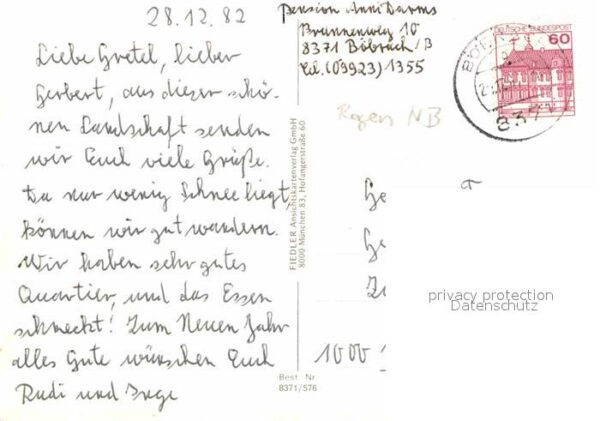 28.12.82
Pension Anni Darms
Brunnenweg 10
8371 Böbrach/B
Tel. (09923) 1355
Liebe Gretel, lieber
Herbert, aus dieser schö-
nen Landschaft senden
wir Euch viele Grüße.
Da nur wenig Schnee liegt
können wir gut wandern.
Wir haben sehr gutes
Quartier, und das Essen
schmeckt! Zum Neuen Jahr
alles Gute wünschen Euch
Rudi und Inge
FIEDLER Ansichtskartenverlag GmbH
8000 München 83, Hofangerstraße 60
Best. Nr
8371/576
Regen NB
DEUTSCHE BUNDESPOST
60
8371
1000
privacy protection
Datenschutz